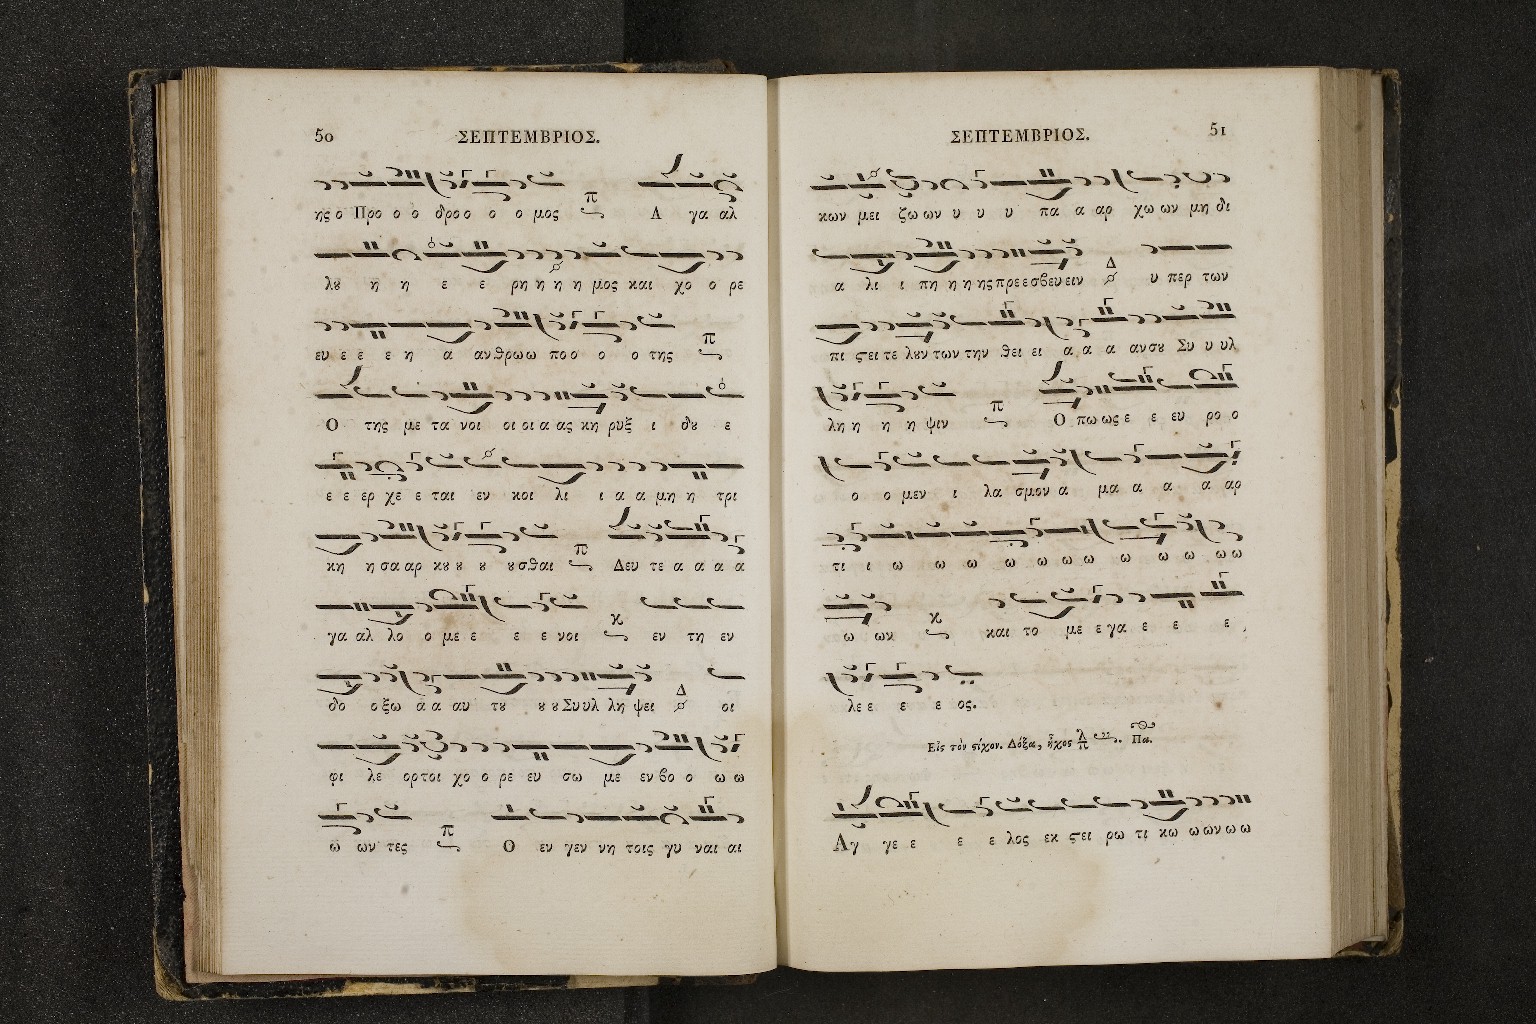 50 ΣΕΠΤΕΜΒΡΙΟΣ.
ης ο Προ ο ο δρο ο ο ο μος π Α γα αλ
λȣ η η ε ε ρη η η η μος και χο ο ρε
ευ ε ε ε η α αν θρω ω πο ο ο ο της π
Ο της με τα νοι οι οι α ας κη ρυξ ι δȣ ε
ε ε ερ χε ε ται εν κοι λι ι α α μη η τρι
κη η σα αρ κȣ ȣ ȣ ȣσθαι π Δευ τε α α α α
γα αλ λο ο με ε ε ε νοι κ εν τη εν
δο ο ξω α α αυ τȣ ȣ ȣ Συ υλ λη ψει Δ οι
φι λε ορ τοι χο ο ρε ευ σω με εν βο ο ω ω
ω ων τες π Ο εν γεν νη τοις γυ ναι αι
ΣΕΠΤΕΜΒΡΙΟΣ. 51
κων μει ζω ων υ υ υ πα α αρ χω ων μη δι
α λι ι πη η η ης πρε ε σβευ ειν Δ υ περ των
πι ϛει τε λȣν των την θει ει α α α αν σȣ Συ υ υλ
λη η η η ψιν π Ο πω ως ε ε ευ ρο ο
ο ο μεν ι λα σμον α μα α α α αρ
τι ι ω ω ω ω ω ω ω ω ω ω ω ω
ω ων κ και το με ε γα ε ε ε
λε ε ε ε ος.
Εἰς τὸν ϛίχον. Δόξα, ἦχος λ π Πα.
Αγ γε ε ε ε λος εκ ϛει ρω τι κω ω ων ω ω